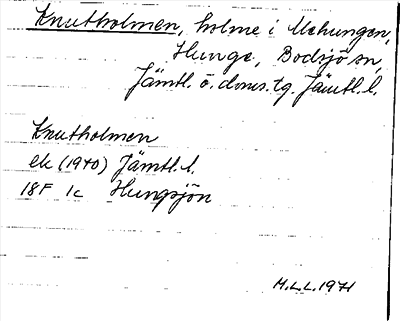 Knutholmen, holme i Mehungen,
Hunge, Bodsjö sn,
Jämtl. ö. doms.tg. Jämtl. l.
Knutholmen
ek (1940) Jämtl. l.
18F 1c Hungsjön
M.L.L. 1971